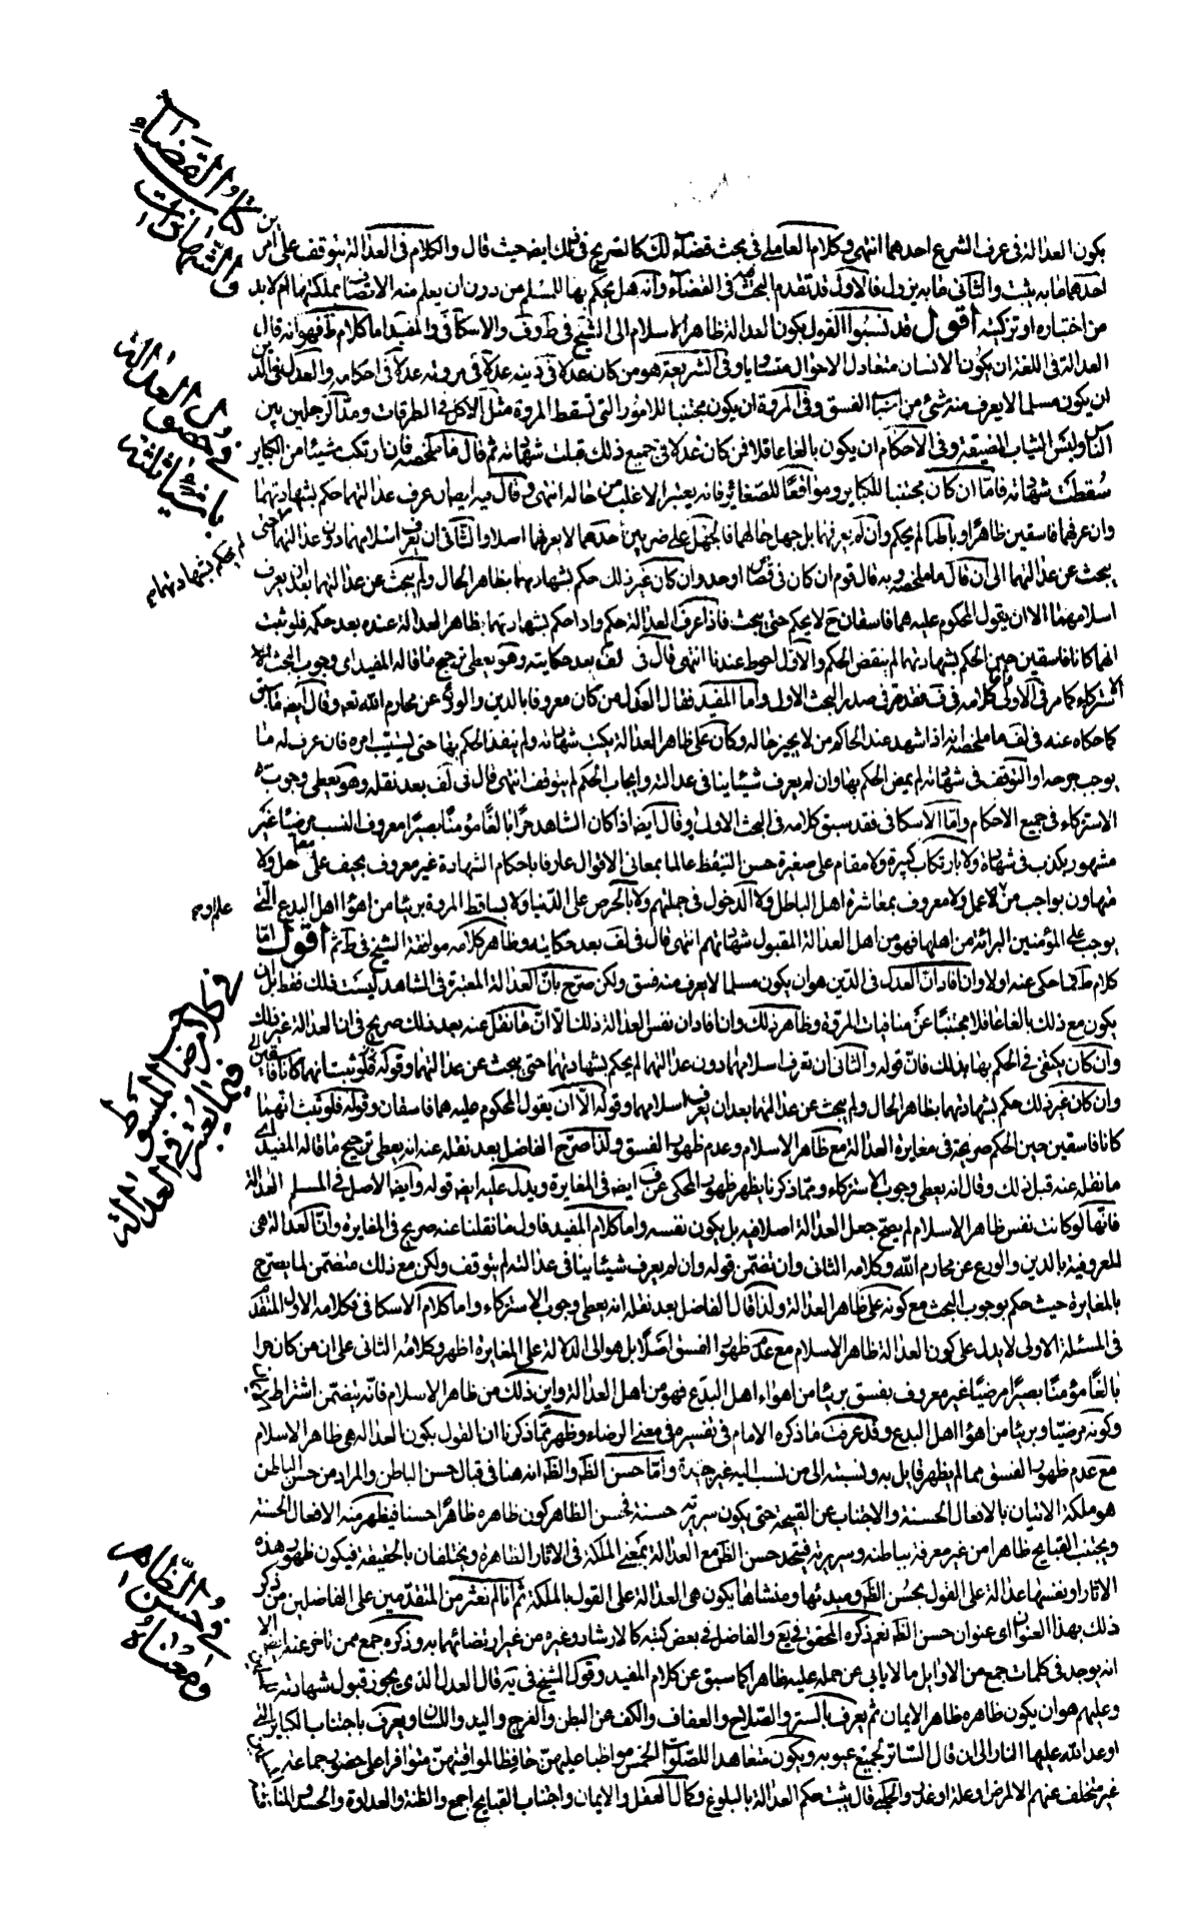 كتاب القضاء
والشهادات
يكون العدالة فى عرف الشرع احدهما انتهى وكلام العاملى فى بحث قضاء لك كالصريح فى ذلك ايضا حيث قال والكلام فى العدالة يتوقف على امرين
احدهما ما به يثبت والثانى ما به يزول فالاول قد تقدم البحث فى القضاء وانه هل يحكم بها للمسلم من دون ان يعلم منه الاتصاف بملكتها ام لا بد
من اختباره او تزكيته اقول قد نسبوا القول بكون العدالة ظاهر الاسلام الى الشيخ فى ط وف والاسكافى والمفيد اما كلام ط فهو انه قال
العدالة فى اللغة ان يكون الانسان متعادل الاحوال متساويا وفى الشريعة هو من كان عدلا فى دينه عدلا فى مروته عدلا فى احكامه والعدل فى الدين
ان يكون مسلما لا يعرف منه شئ من اسباب الفسق وفى المروة ان يكون مجتنبا للامور التى تسقط المروة مثل الاكل فى الطرقات ومد الرجلين بين
الناس ولبس الثياب المصبغة وفى الاحكام ان يكون بالغا عاقلا فمن كان عدلا فى جميع ذلك قبلت شهادته ثم قال ما ملخصه فان ارتكب شيئا من الكباير
سقطت شهادته فاما ان كان مجتنبا للكباير ومواقعا للصغاير فانه يعتبر الاغلب من حاله انتهى وقال فيه ايضا ان عرف عدالتهما حكم بشهادتهما
وان عرفهما فاسقين ظاهرا او باطنا لم يحكم وان لم يعرفهما بل جهل حالهما فالجهل على ضربين احدهما لا يعرفهما اصلا والثانى ان يعرف اسلامهما دون عدالتهما لم يحكم بشهادتهما حتى
يبحث عن عدالتهما الى ان قال ما ملخصه وبه قال قوم ان كان فى قصاص او حد وان كان غير ذلك حكم بشهادتهما بظاهر الحال ولم يبحث عن عدالتهما بعد ان يعرف
اسلامهما الا ان يقول المحكوم عليه هما فاسقان ح لا يحكم حتى يبحث فاذا عرف العدالة حكم واذا حكم بشهادتهما بظاهر العدالة عنده بعد حكمه فلو ثبت
انهما كانا فاسقين حين الحكم بشهادتهما لم ينقض الحكم والاول احوط عندنا انتهى قال فى لف بعد حكايته وهو يعطى ترجيح ما قاله المفيد اى وجوب البحث
الاستزكاء كما مر فى الاولى واما كلامه فى ف فقد مر فى صدر البحث الاول واما المفيد فقال العدل من كان معروفا بالدين والورع عن محارم الله تعه وقال ايضا
كما حكاه عنه فى لف ما ملخصه انه اذا شهد عند الحاكم من لا يخبر حاله وكان على ظاهر العدالة يكتب شهادته ولم ينفذ الحكم بها حتى يستثبت امره فان عرف له ما
يوجب جرحه او التوقف فى شهادته لم يمض الحكم بها وان لم يعرف شيئا ينافى عدالته وايجاب الحكم لم يتوقف انتهى قال فى لف بعد نقله وهو يعطى وجوب
الاستزكاء فى جميع الاحكام واما الاسكافى فقد سبق كلامه فى البحث الاول وقال ايضا اذا كان الشاهد حرا بالغا مؤمنا بصيرا معروف النسب مرضيا غير
مشهور بكذب فى شهادة ولا بارتكاب كبيرة ولا مقام على صغيرة حسن التيقظ عالما بمعانى الاقوال عارفا باحكام الشهادة غير معروف بحيف على معامل ولا
متهاون بواجب من علم او عمل ولا معروف بمعاشرة اهل الباطل ولا الدخول فى جملتهم ولا بالحرص على الدنيا ولا بساقط المروة بريئا من اهواء اهل البدع التى
يوجب على المؤمنين البرائة من اهلها فهو من اهل العدالة المقبول شهادتهم انتهى قال فى لف بعد حكايته وظاهر كلامه موافقة الشيخ فى ط ثم اقول اما
كلام ط فما حكى عنه اولا وان افاد ان العدل فى الدين هو ان يكون مسلما لا يعرف منه فسق ولكن صرح بان العدالة المعتبرة فى الشاهد ليست ذلك فقط بل ان
يكون مع ذلك بالغا عاقلا مجتنبا عن منافيات المروة وظاهر ذلك وان افاد ان نفس العدالة ذلك الا ان ما نقل عنه بعد ذلك صريح فى ان العدالة غير ذلك
وان كان يكتفى فى الحكم بها بذلك فان قوله والثانى ان تعرف اسلامهما دون عدالتهما لم يحكم بشهادتهما حتى يبحث عن عدالتهما وقوله فلو ثبت انهما كانا فاسقين
وان كان غير ذلك حكم بشهادتهما بظاهر الحال ولم يبحث عن عدالتهما بعد ان يعرف اسلامهما وقوله الا ان يقول المحكوم عليه هما فاسقان وقوله فلو ثبت انهما
كانا فاسقين حين الحكم صريحة فى مغايرة العدالة مع ظاهر الاسلام وعدم ظهور الفسق ولذا صرح الفاضل بعد نقله عنه انه يعطى ترجيح ما قاله المفيد اى
ما نقله عنه قبل ذلك وقال انه يعطى وجوب الاستزكاء ومما ذكرنا يظهر ظهور المحكى عن ف ايضا فى المغايرة ويدل عليه ايضا قوله وايضا الاصل فى المسلم العدالة
فانها لو كانت نفس ظاهر الاسلام لم يصح جعل العدالة اصلا فيه بل يكون نفسه واما كلام المفيد فاول ما نقلنا عنه صريح فى المغايرة وان العدالة هى
المعروفية بالدين والورع عن محارم الله وكلامه الثانى وان تضمن قوله وان لم يعرف شيئا ينافى عدالته لم يتوقف ولكن مع ذلك متضمن لما يصرح
بالمغايرة حيث حكم بوجوب البحث مع كونه على ظاهر العدالة ولذا قال الفاضل بعد نقله انه يعطى وجوب الاستزكاء واما كلام الاسكافى فكلامه الاول المتقدم
فى المسئلة الاولى لا يدل على كون العدالة ظاهر الاسلام مع عدم ظهور الفسق اصلا بل هو الى الدلالة على المغايرة اظهر وكلامه الثانى على ان من كان حرا
بالغا مؤمنا بصيرا مرضيا غير معروف بفسق بريئا من اهواء اهل البدع فهو من اهل العدالة واين ذلك من ظاهر الاسلام فانه يتضمن اشتراط
وكونه مرضيا وبريئا من اهواء اهل البدع وقد عرفت ما ذكره الامام فى تفسيره فى معنى الرضاء وظهر مما ذكرنا ان القول بكون العدالة هى ظاهر الاسلام
مع عدم ظهور الفسق مما لم يظهر قايل به ونسبته الى من نسب اليه غير جيدة واما حسن الظه والظه انه هنا فى قبال حسن الباطن والمراد من حسن الباطن
هو ملكة الاتيان بالافعال الحسنة والاجتناب عن القبيحة حتى يكون سريرته حسنة فحسن الظاهر كون ظاهره ظاهرا حسنا فيظهر منه الافعال الحسنة
ويجتنب القبايح ظاهرا من غير معرفة بباطنه وسريرته فيتحد حسن الظه مع العدالة بمعنى الملكة فى الاثار الظاهرة ويختلفان بالحقيقة فيكون ظهور هذه
الاثار او نفسها عدالة على القول بحسن الظه ومبدئها ومنشاها يكون هى العدالة على القول بالملكة ثم انا لم نعثر من المتقدمين على الفاضلين من ذكر
ذلك بهذا العنوان اى عنوان حسن الظه نعم ذكره المحقق فى يع والفاضل فى بعض كتبه كالارشاد وغيره من غير ارتضائهما به وذكره جمع ممن تاخر عنهما الا
انه يوجد فى كلمات جمع من الاوايل ما لا يابى عن حمله عليه ظاهرا كما سبق عن كلام المفيد وقول الشيخ فى يه قال العدل الذى يجوز قبول شهادته
وعليهم هو ان يكون ظاهره ظاهر الايمان ثم يعرف بالستر والصلاح والعفاف والكف عن البطن والفرج واليد واللسان ويعرف باجتناب الكباير التى
اوعد الله عليها النار الى ان قال الساتر لجميع عيوبه ويكون متعاهدا للصلوات الخمس مواظبا عليهن حافظا لمواقيتهن متوافرا على حضور جماعة
غير متخلف عنهم الا لمرض او علة او عذر والحلبى قال يثبت حكم العدالة بالبلوغ وكمال العقل والايمان واجتناب القبايح اجمع والظنة والعداوة والحسد
فى ان العدالة
فى كلام المبسوط
فيما يعتبر فى العدالة
فى حسن الظاهر
ومعناه